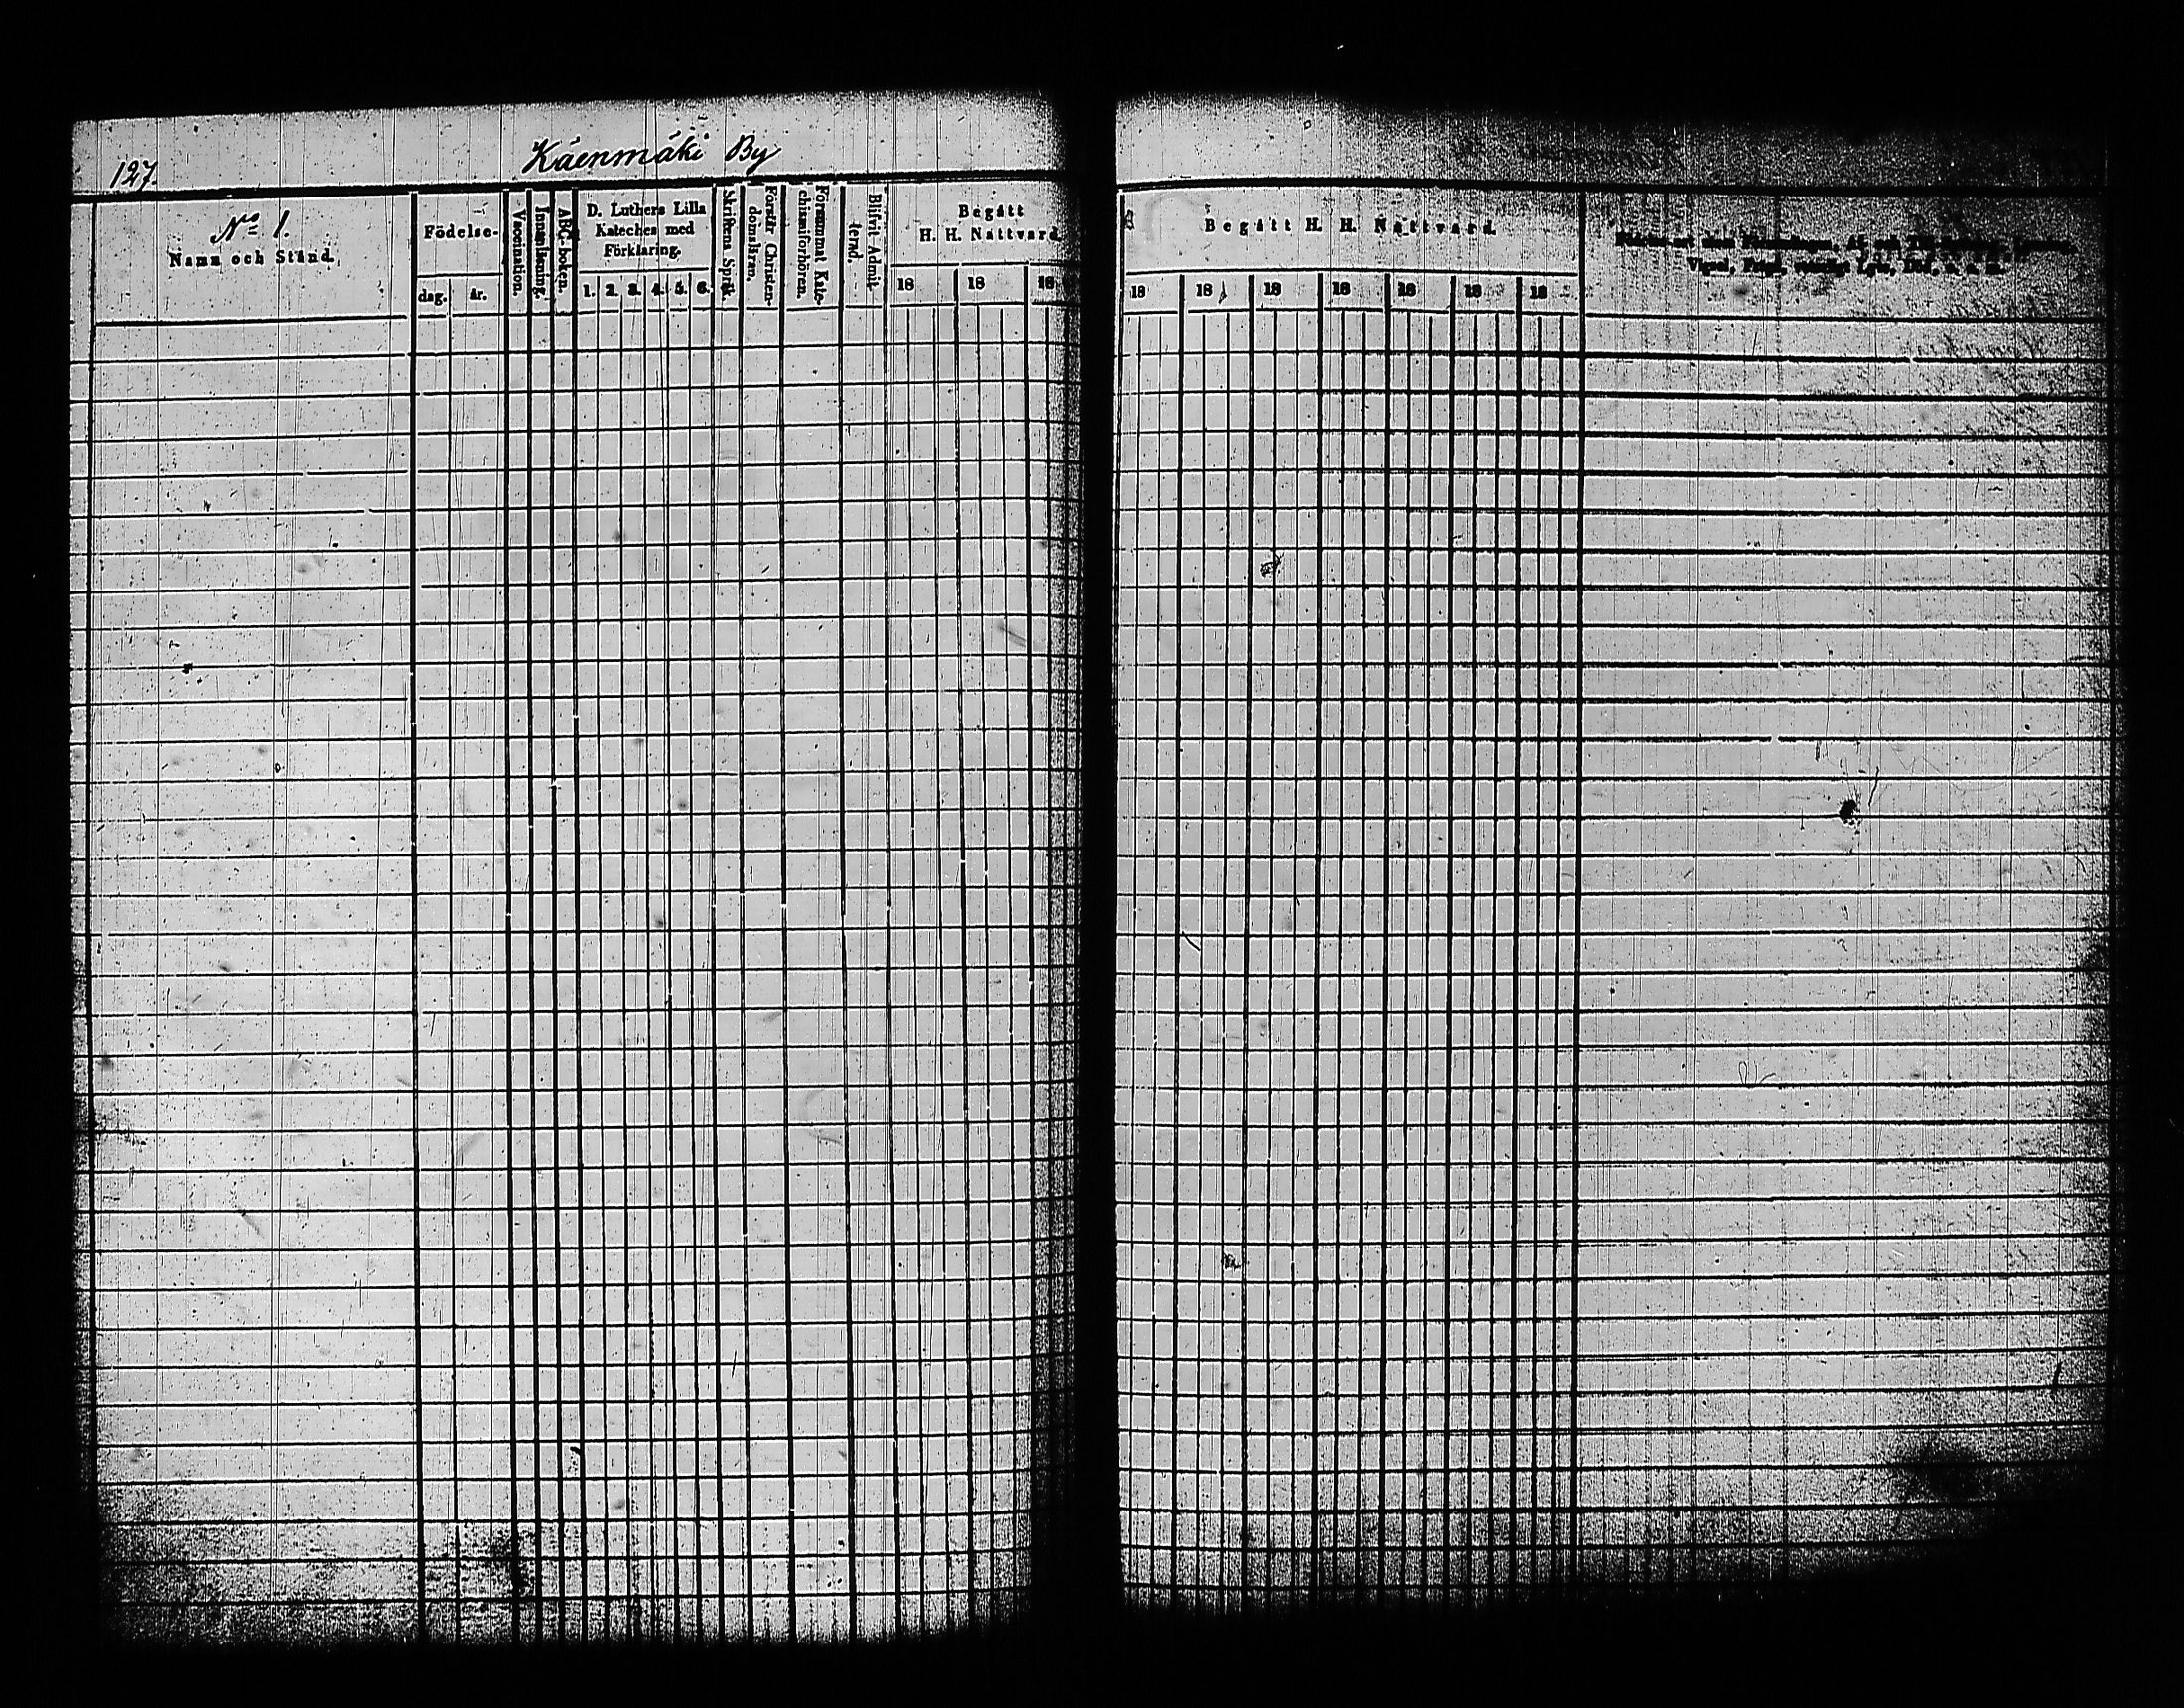 127.
Käenmäki By
No 1.
Namn och Stånd.
Födelse-
dag. år.
Vaccination.
Innanläsning.
ABC-boken.
D. Luthers Lilla
Kateches med
Förklaring.
1. 2. 3. 4. 5. 6.
Skriftens Språk.
Förstår Christen-
domsläran.
Försummat Kate-
chismiförhören.
Blifvit Admit-
terad.
Begått
H. H. Nattvard.
18 18 18
Begått H. H. Nattvard.
18 18 18 18 18 18 18